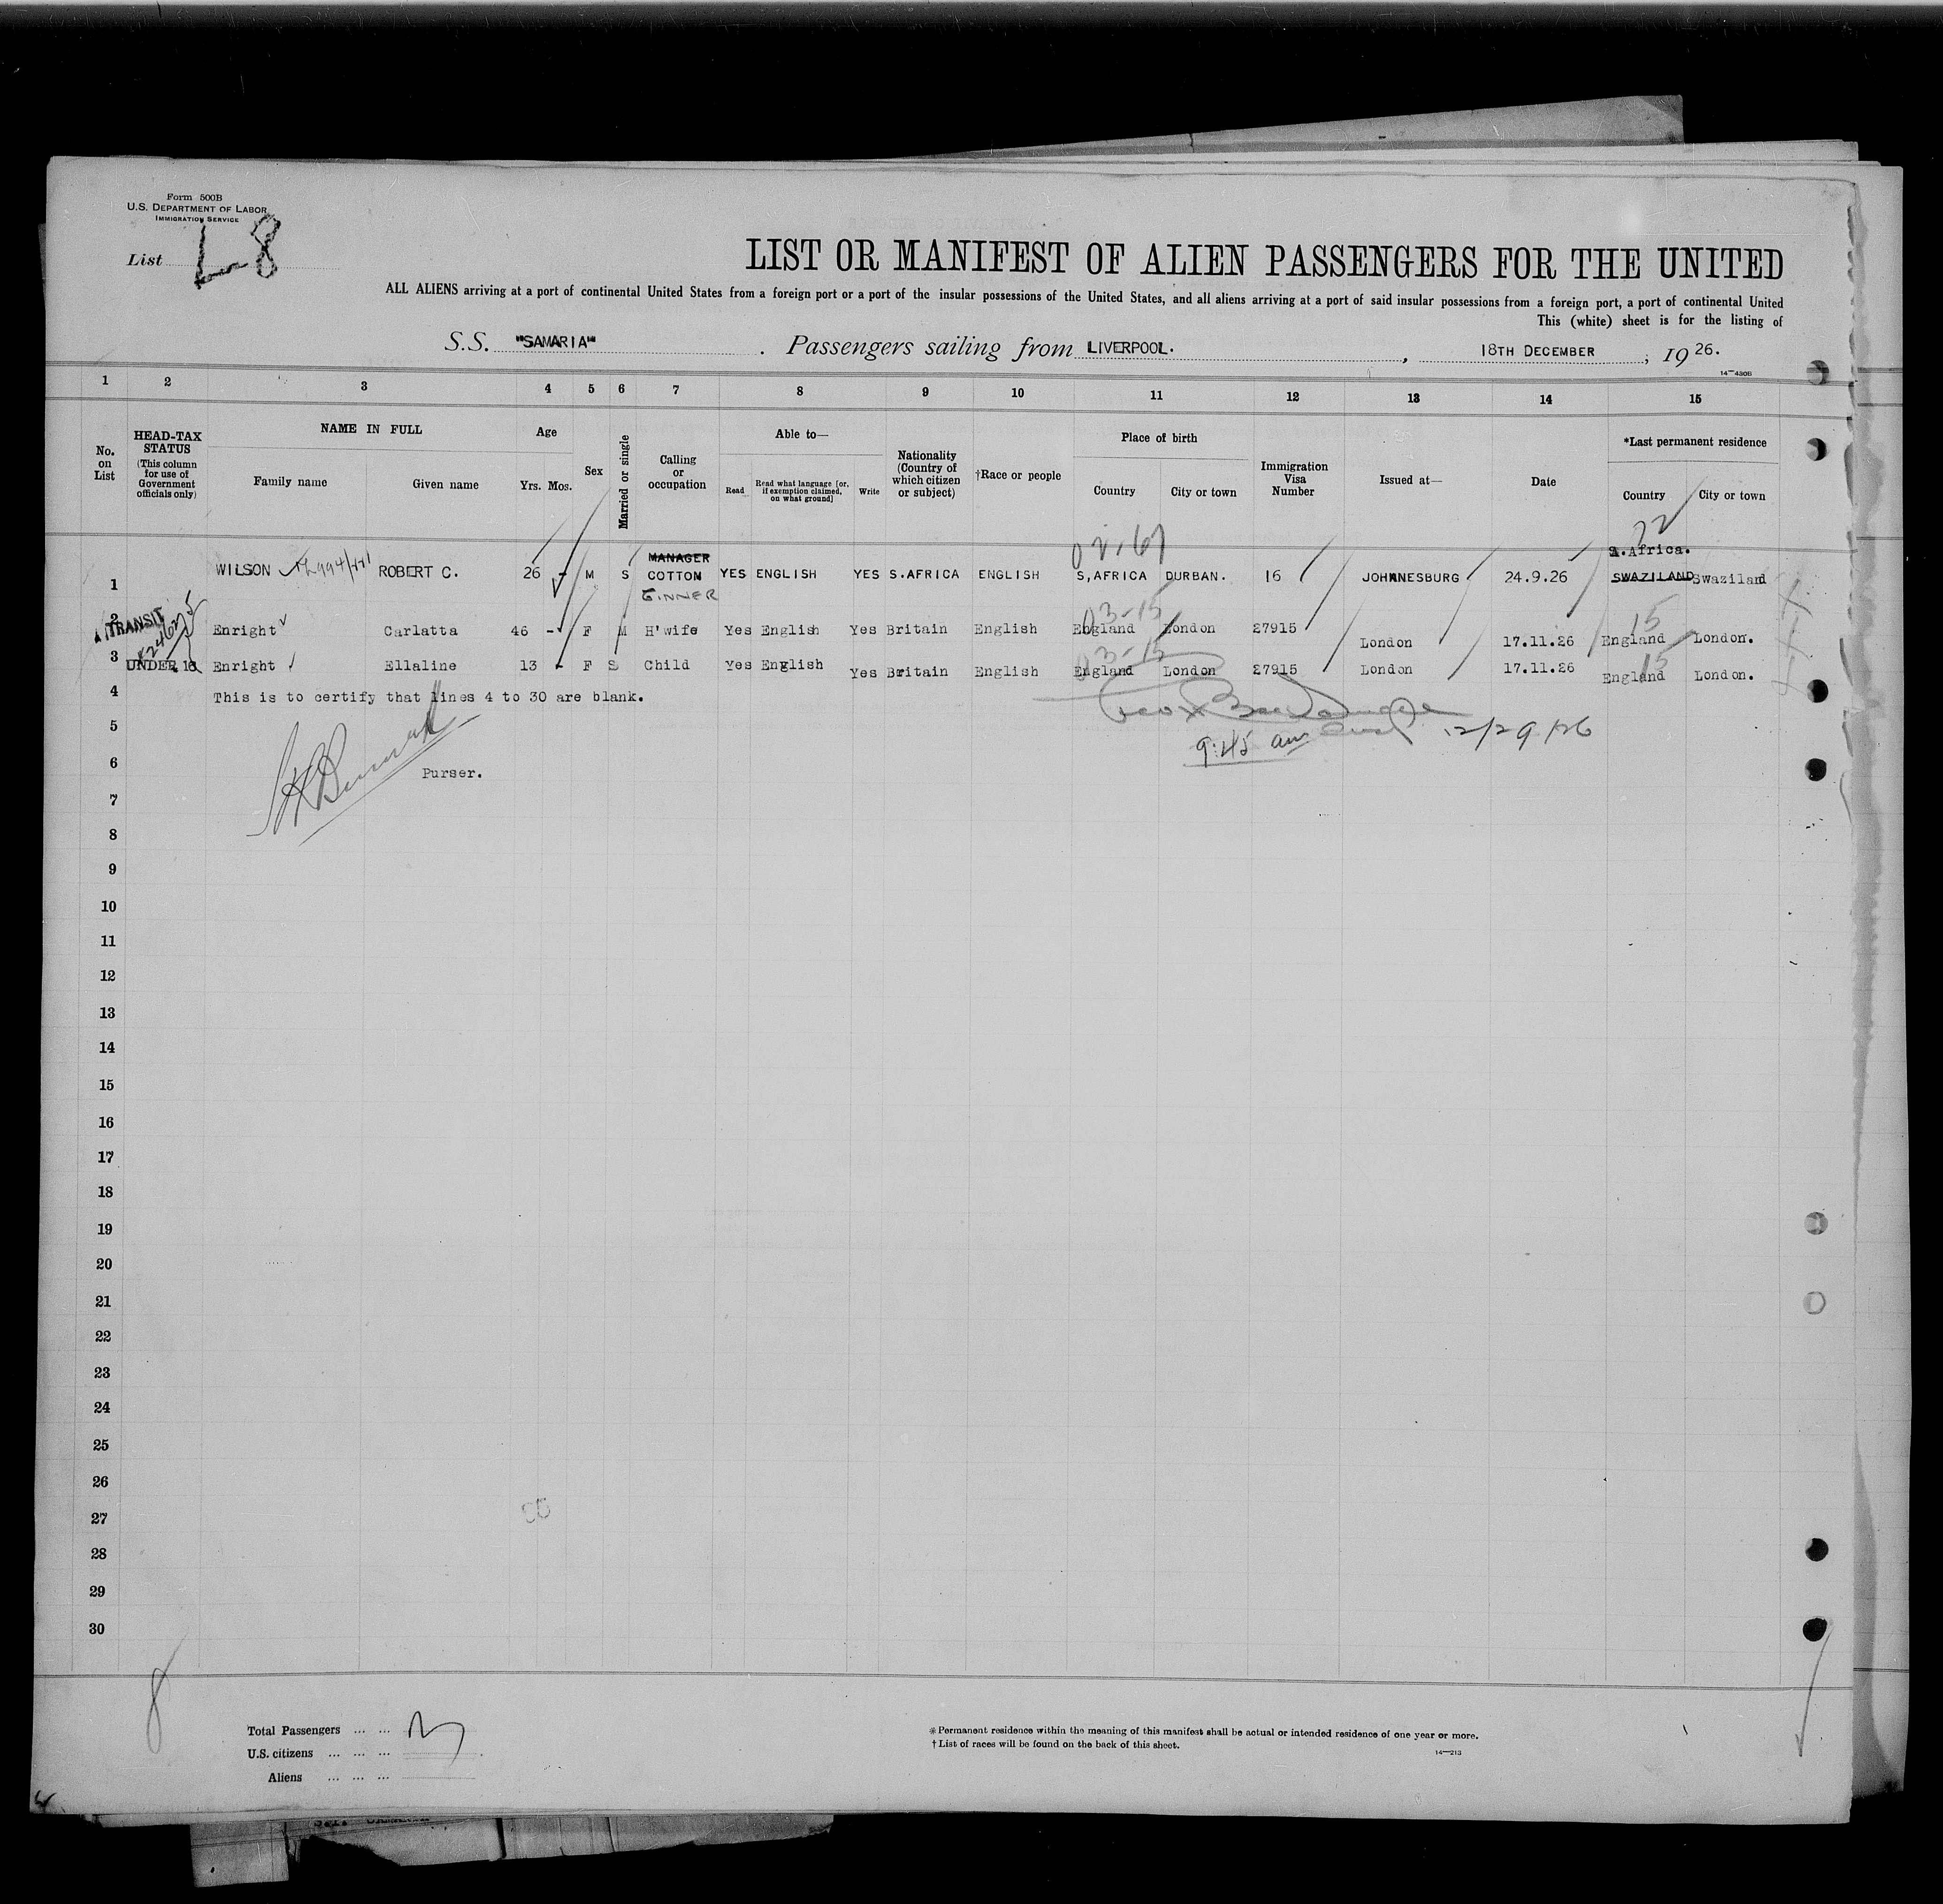 Form 500B
U.S. DEPARTMENT OF LABOR
IMMIGRATION SERVICE
List L-8
LIST OR MANIFEST OF ALIEN PASSENGERS FOR THE UNITED
ALL ALIENS arriving at a port of continental United States from a foreign port or a port of the insular possessions of the United States, and all aliens arriving at a port of said insular possessions from a foreign port, a port of continental United
This (white) sheet is for the listing of
S.S. "SAMARIA" . Passengers sailing from LIVERPOOL. , 18TH DECEMBER ; 19 26.
14—430B
1 2 3 4 5 6 7 8 9 10 11 12 13 14 15
No. on List
HEAD-TAX STATUS (This column for use of Government officials only)
NAME IN FULL
Family name Given name
Age
Yrs. Mos.
Sex
Married or single
Calling or occupation
Able to—
Read Read what language [or, if exemption claimed, on what ground] Write
Nationality (Country of which citizen or subject)
†Race or people
Place of birth
Country City or town
Immigration Visa Number
Issued at—
Date
*Last permanent residence
Country City or town
02-67 72
MANAGER S.Africa.
1 WILSON ROBERT C. 26 - M S COTTON YES ENGLISH YES S.AFRICA ENGLISH S,AFRICA DURBAN. 16 JOHANNESBURG 24.9.26 SWAZILAND Swaziland
GINNER
03-15 15
2 TRANSIT Enright Carlatta 46 - F M H'wife Yes English Yes Britain English England London 27915 London 17.11.26 England London.
03-15 15
3 UNDER 16 Enright Ellaline 13 - F S Child Yes English Yes Britain English England London 27915 London 17.11.26 England London.
4 This is to certify that lines 4 to 30 are blank.
5
9:45 am 12/29/26
6 Purser.
7
8
9
10
11
12
13
14
15
16
17
18
19
20
21
22
23
24
25
26
27
28
29
30
8
Total Passengers ... ... 3
U.S. citizens ... ... ...
Aliens ... ... ...
*Permanent residence within the meaning of this manifest shall be actual or intended residence of one year or more.
†List of races will be found on the back of this sheet.
14—213